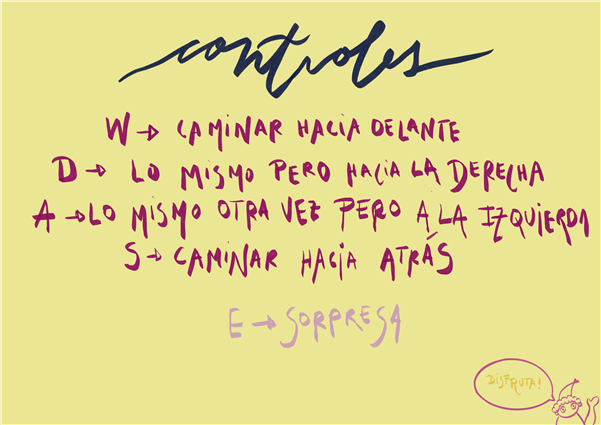 controles
W → CAMINAR HACIA DELANTE
D → LO MISMO PERO HACIA LA DERECHA
A → LO MISMO OTRA VEZ PERO A LA IZQUIERDA
S → CAMINAR HACIA ATRÁS
E → SORPRESA
DISFRUTA!